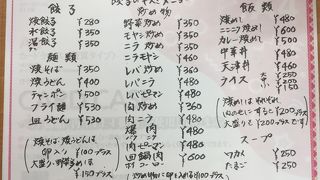 餃子
焼餃子 ¥280
水餃子 ¥350
湯餃子 ¥350
麺類
焼そば ¥350
焼うどん ¥400
チャンポン ¥500
フライ麺 ¥530
皿うどん ¥530
焼そば、焼うどんは
卵入り ¥100プラス
大盛り・野菜多めは
¥150プラス
炒め物
野菜炒め ¥350
モヤシ炒め ¥350
ニラ炒め ¥350
ニラモヤシ ¥460
レバ炒め ¥350
レバニラ ¥460
レバモヤシ ¥460
レバピーマン ¥480
肉炒め ¥380
肉ニラ ¥480
爆肉 ¥480
肉モヤシ ¥480
肉ピーマン ¥480
回鍋肉 ¥600
ホイコーロー
飯類
焼めし ¥480
ニンニク焼めし ¥600
カレー焼めし ¥500
中華丼 ¥480
天津丼 ¥460
ライス
¥200
¥150
焼めしはそれぞれ
肉のせにすると¥200プラス
大盛りで¥200プラスです
スープ
ワカメ ¥250
たまご ¥250